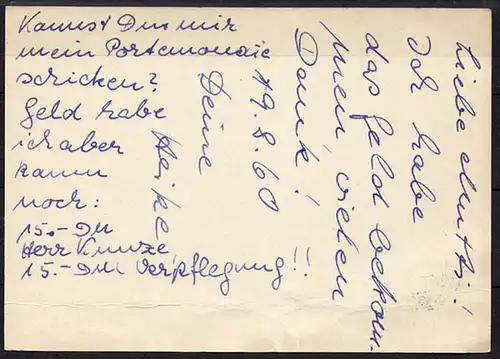 Liebe Mutti!
Ich habe
das Geld bekom-
men, vielen
Dank!
19.8.60
Deine
Heike
Kannst Du mir
mein Portemonaie
schicken?
Geld habe
ich aber
kaum
noch:
15.-DM
Herr Kunze,
15.-DM Verpflegung!!